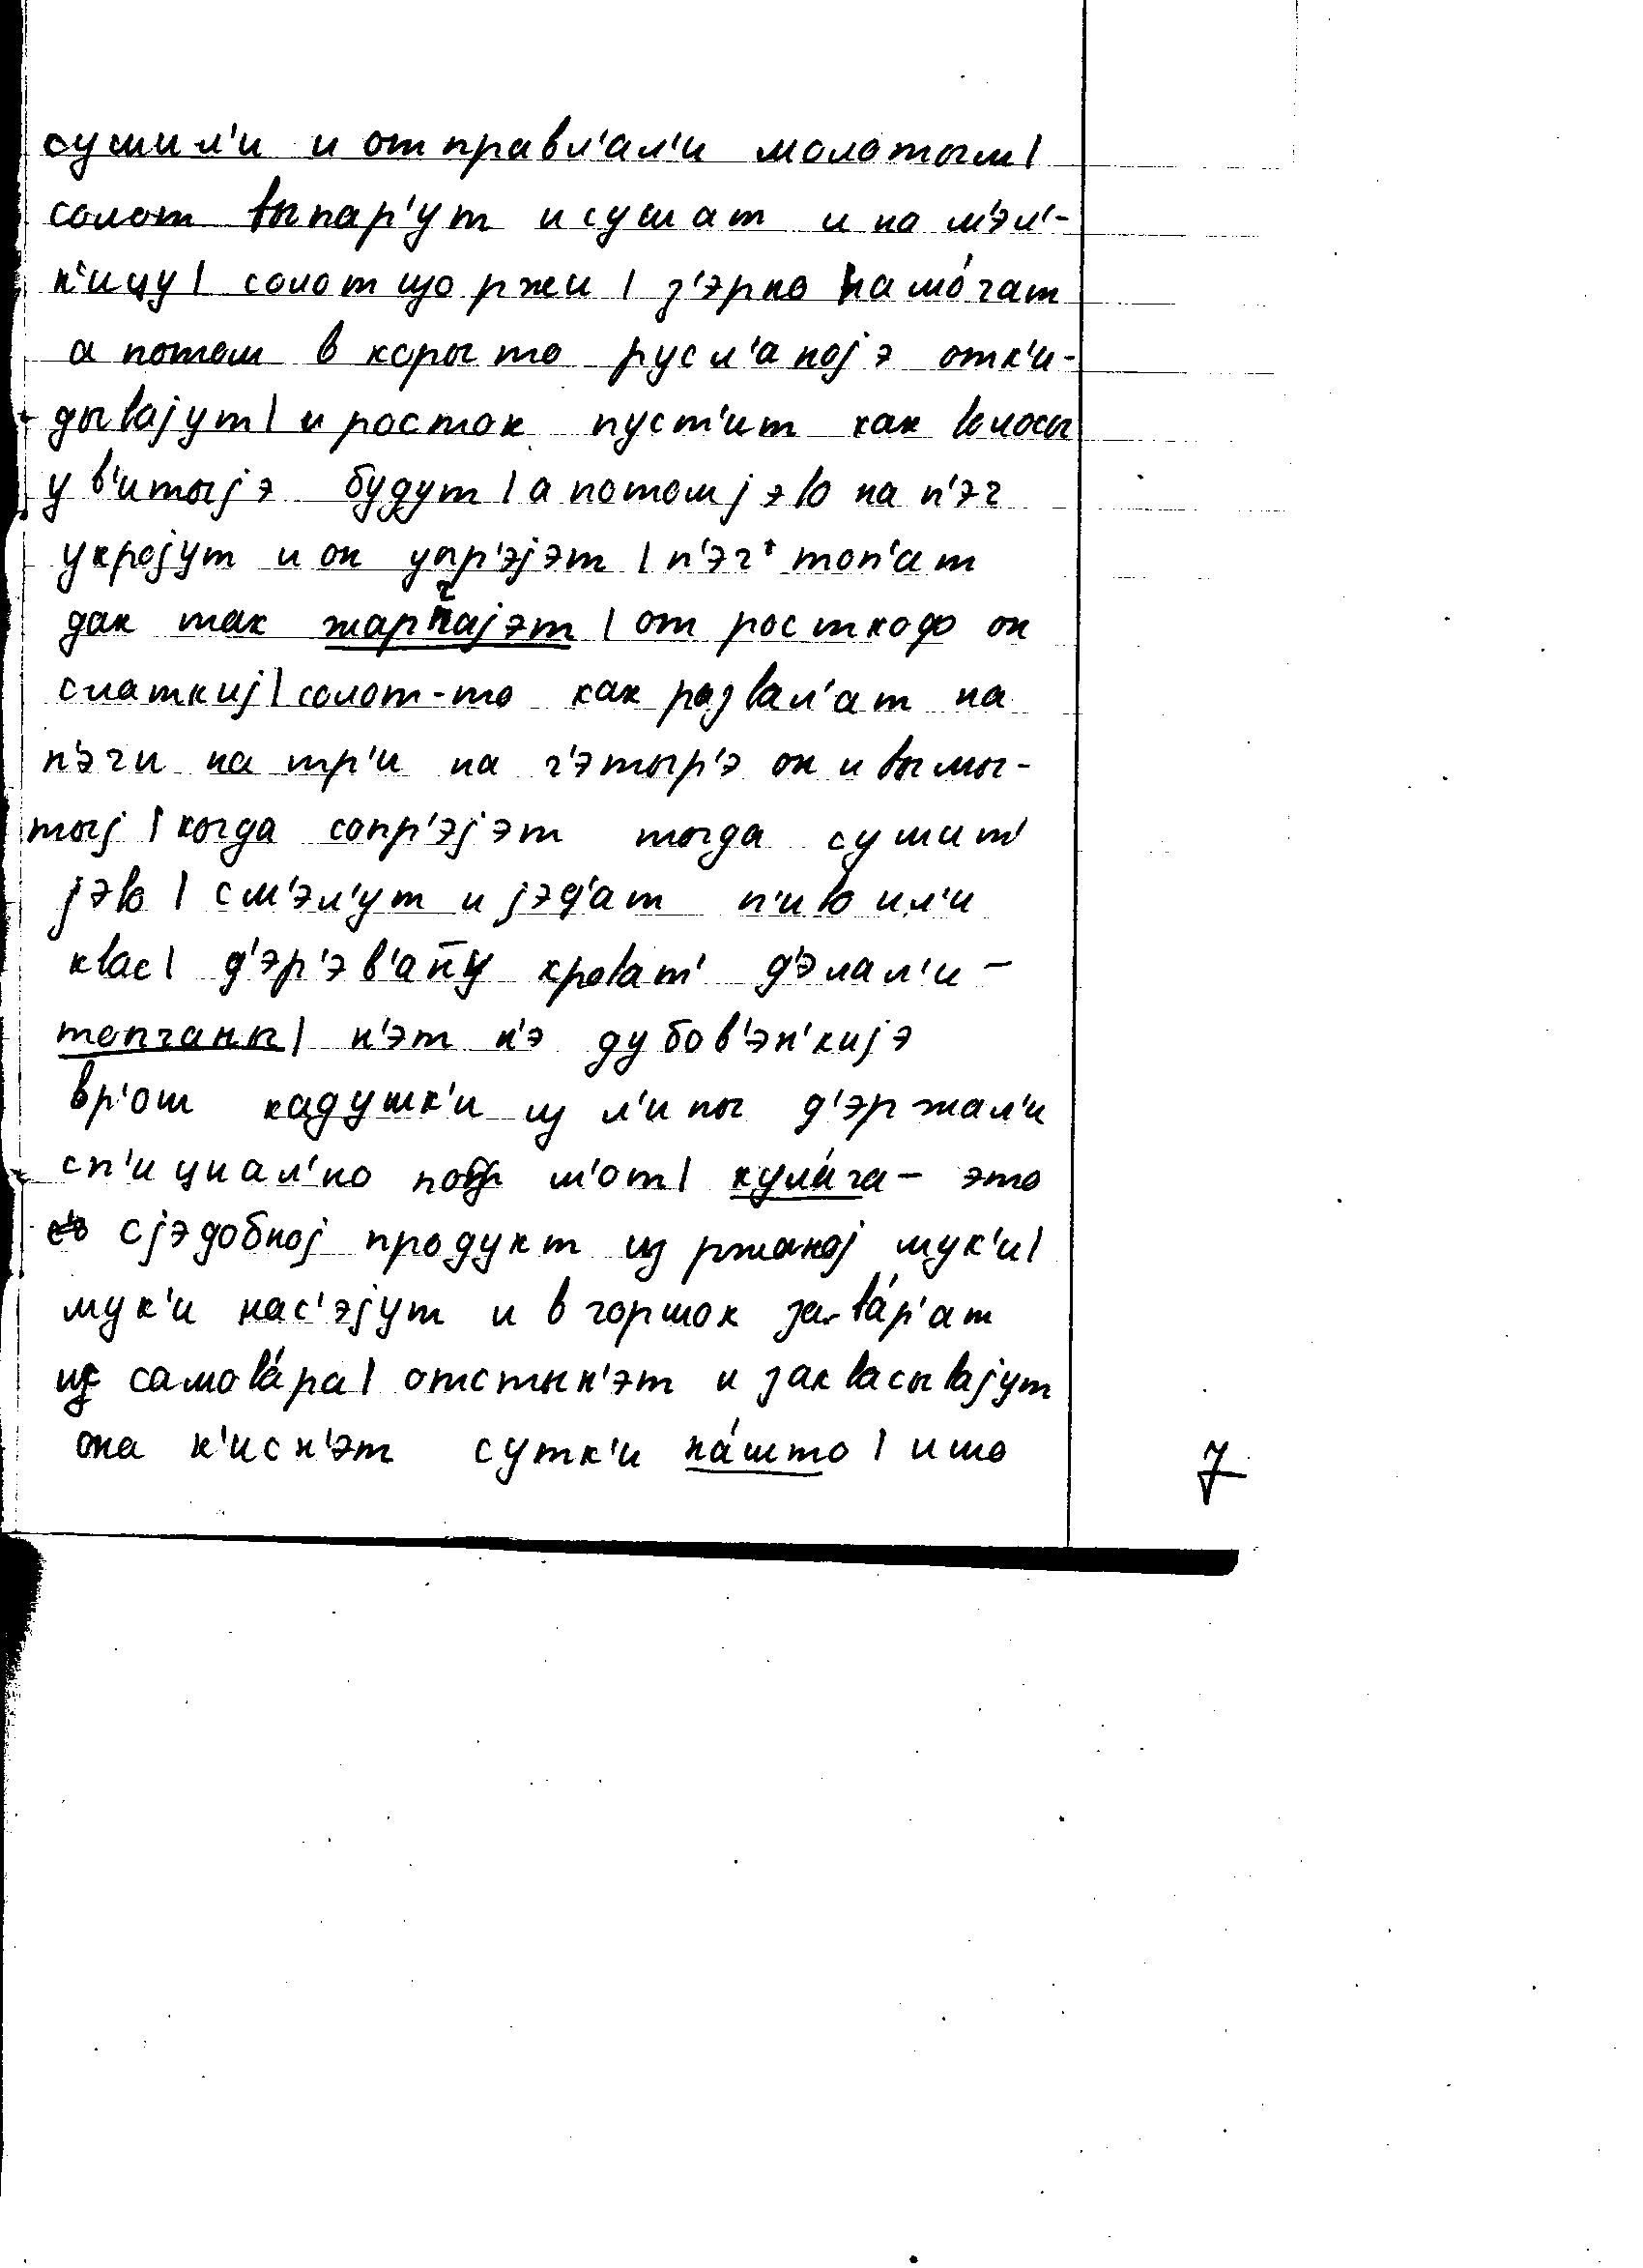 сушил'и и отправл'ал'и молотым|
солот выпар'ут и сушат и на м'эл'-
н'ицу| солот що ржи | з'эрно намо́чат
а потом в корыто русл'аноjэ отк'и-
дываjут| и росток пуст'ит как волосы
ув'итыjэ будут | а потом jэво на п'эч
укроjут и он упр'эjэт | п'эч' топ'ат
дак так жарчаjэт | от росткоф он
слаткиj| солот-то как развал'ат на
п'эчи на тр'и на ч'этыр'э он и вымы-
тыj | когда сопр'эjэт тогда сушит'
jэво | см'эл'ут и jэд'ат п'иво ил'и
квас| д'эр'эв'ан̄у кроват' д'элал'и –
топчаны| н'эт н'э дубов'эн'киjэ
вр'ош кадушк'и из л'ипы д'эржал'и
сп'ициал'но под м'от| кула́га – это
сjэдобноj продукт из ржаноj мук'и|
мук'и нас'эjут и в горшок зава́р'ат
из самова́ра| отстын'эт и заквасываjут
она к'исн'эт сутк'и на́што | ишо
7